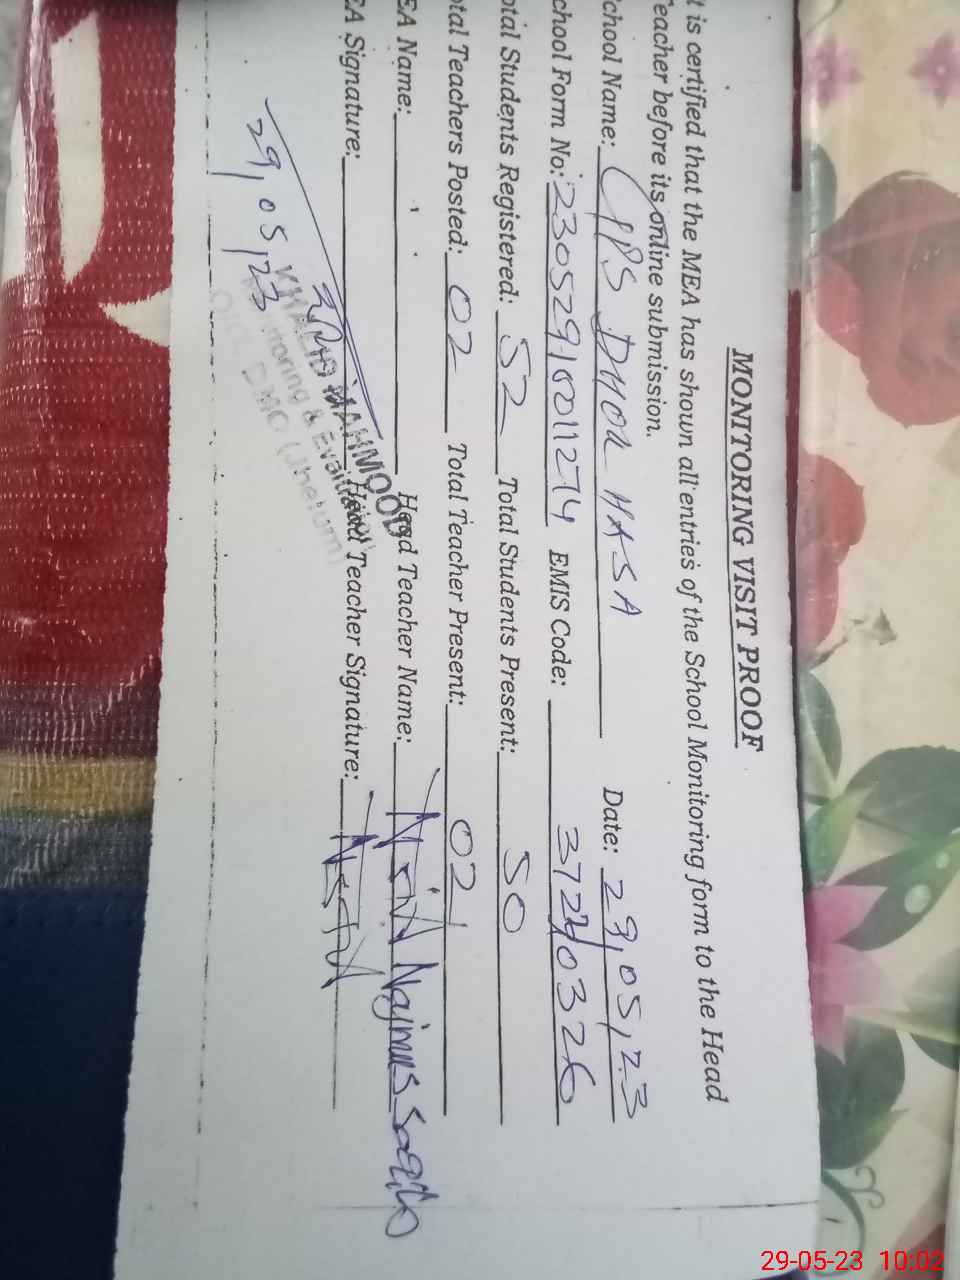 MONITORING VISIT PROOF
t is certified that the MEA has shown all entries of the School Monitoring form to the Head
eacher before its online submission.
chool Name: GPS DHOK HASA Date: 29/05/23
chool Form No: 23052910011274 EMIS Code: 37240326
otal Students Registered: 52 Total Students Present: 50
otal Teachers Posted: 02 Total Teacher Present: 02
EA Name: Head Teacher Name: Najmus
EA Signature: Head Teacher Signature:
29/05/23
KHALID MAHMOOD
Monitoring & Evaluation
O/O. DMO (Jhelum)
29-05-23 10:02